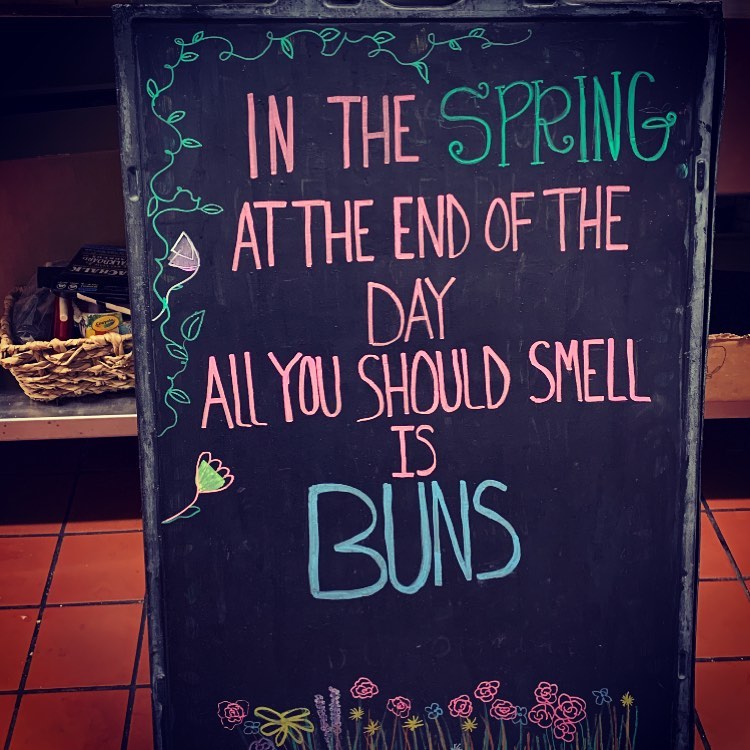 IN THE SPRING
AT THE END OF THE
DAY
ALL YOU SHOULD SMELL
IS
BUNS
CHALK
Crayola